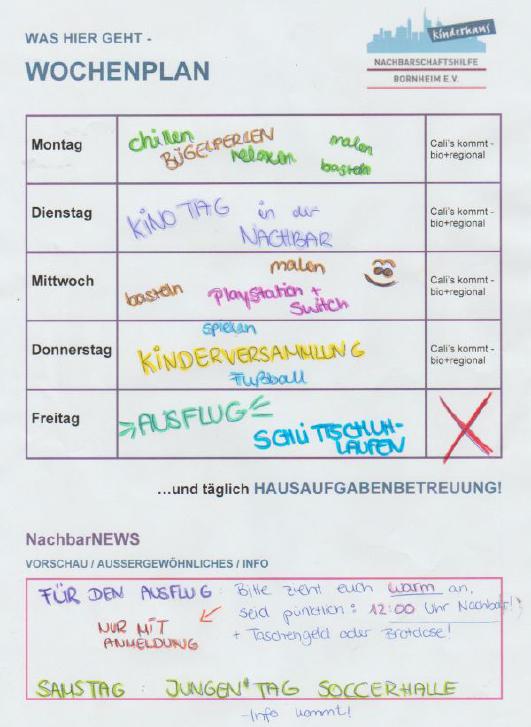 WAS HIER GEHT -
WOCHENPLAN
Kinderhaus
NACHBARSCHAFTSHILFE
BORNHEIM E.V.
Montag
chillen
BÜGELPERLEN
relaxen
malen
basteln
Cali's kommt -
bio+regional
Dienstag
KINO TAG in der
NACHBAR
Cali's kommt -
bio+regional
Mittwoch
malen
basteln
PlayStation +
Switch
Cali's kommt -
bio+regional
Donnerstag
spielen
KINDERVERSAMMLUNG
Fußball
Cali's kommt -
bio+regional
Freitag
AUSFLUG
SCHLITTSCHUH-
LAUFEN
...und täglich HAUSAUFGABENBETREUUNG!
NachbarNEWS
VORSCHAU / AUSSERGEWÖHNLICHES / INFO
FÜR DEN AUSFLUG: Bitte zieht euch warm an,
seid pünktlich: 12:00 Uhr Nachbar!!
+ Taschengeld oder Brotdose!
NUR MIT
ANMELDUNG
SAMSTAG: JUNGEN* TAG SOCCERHALLE
-Info kommt!